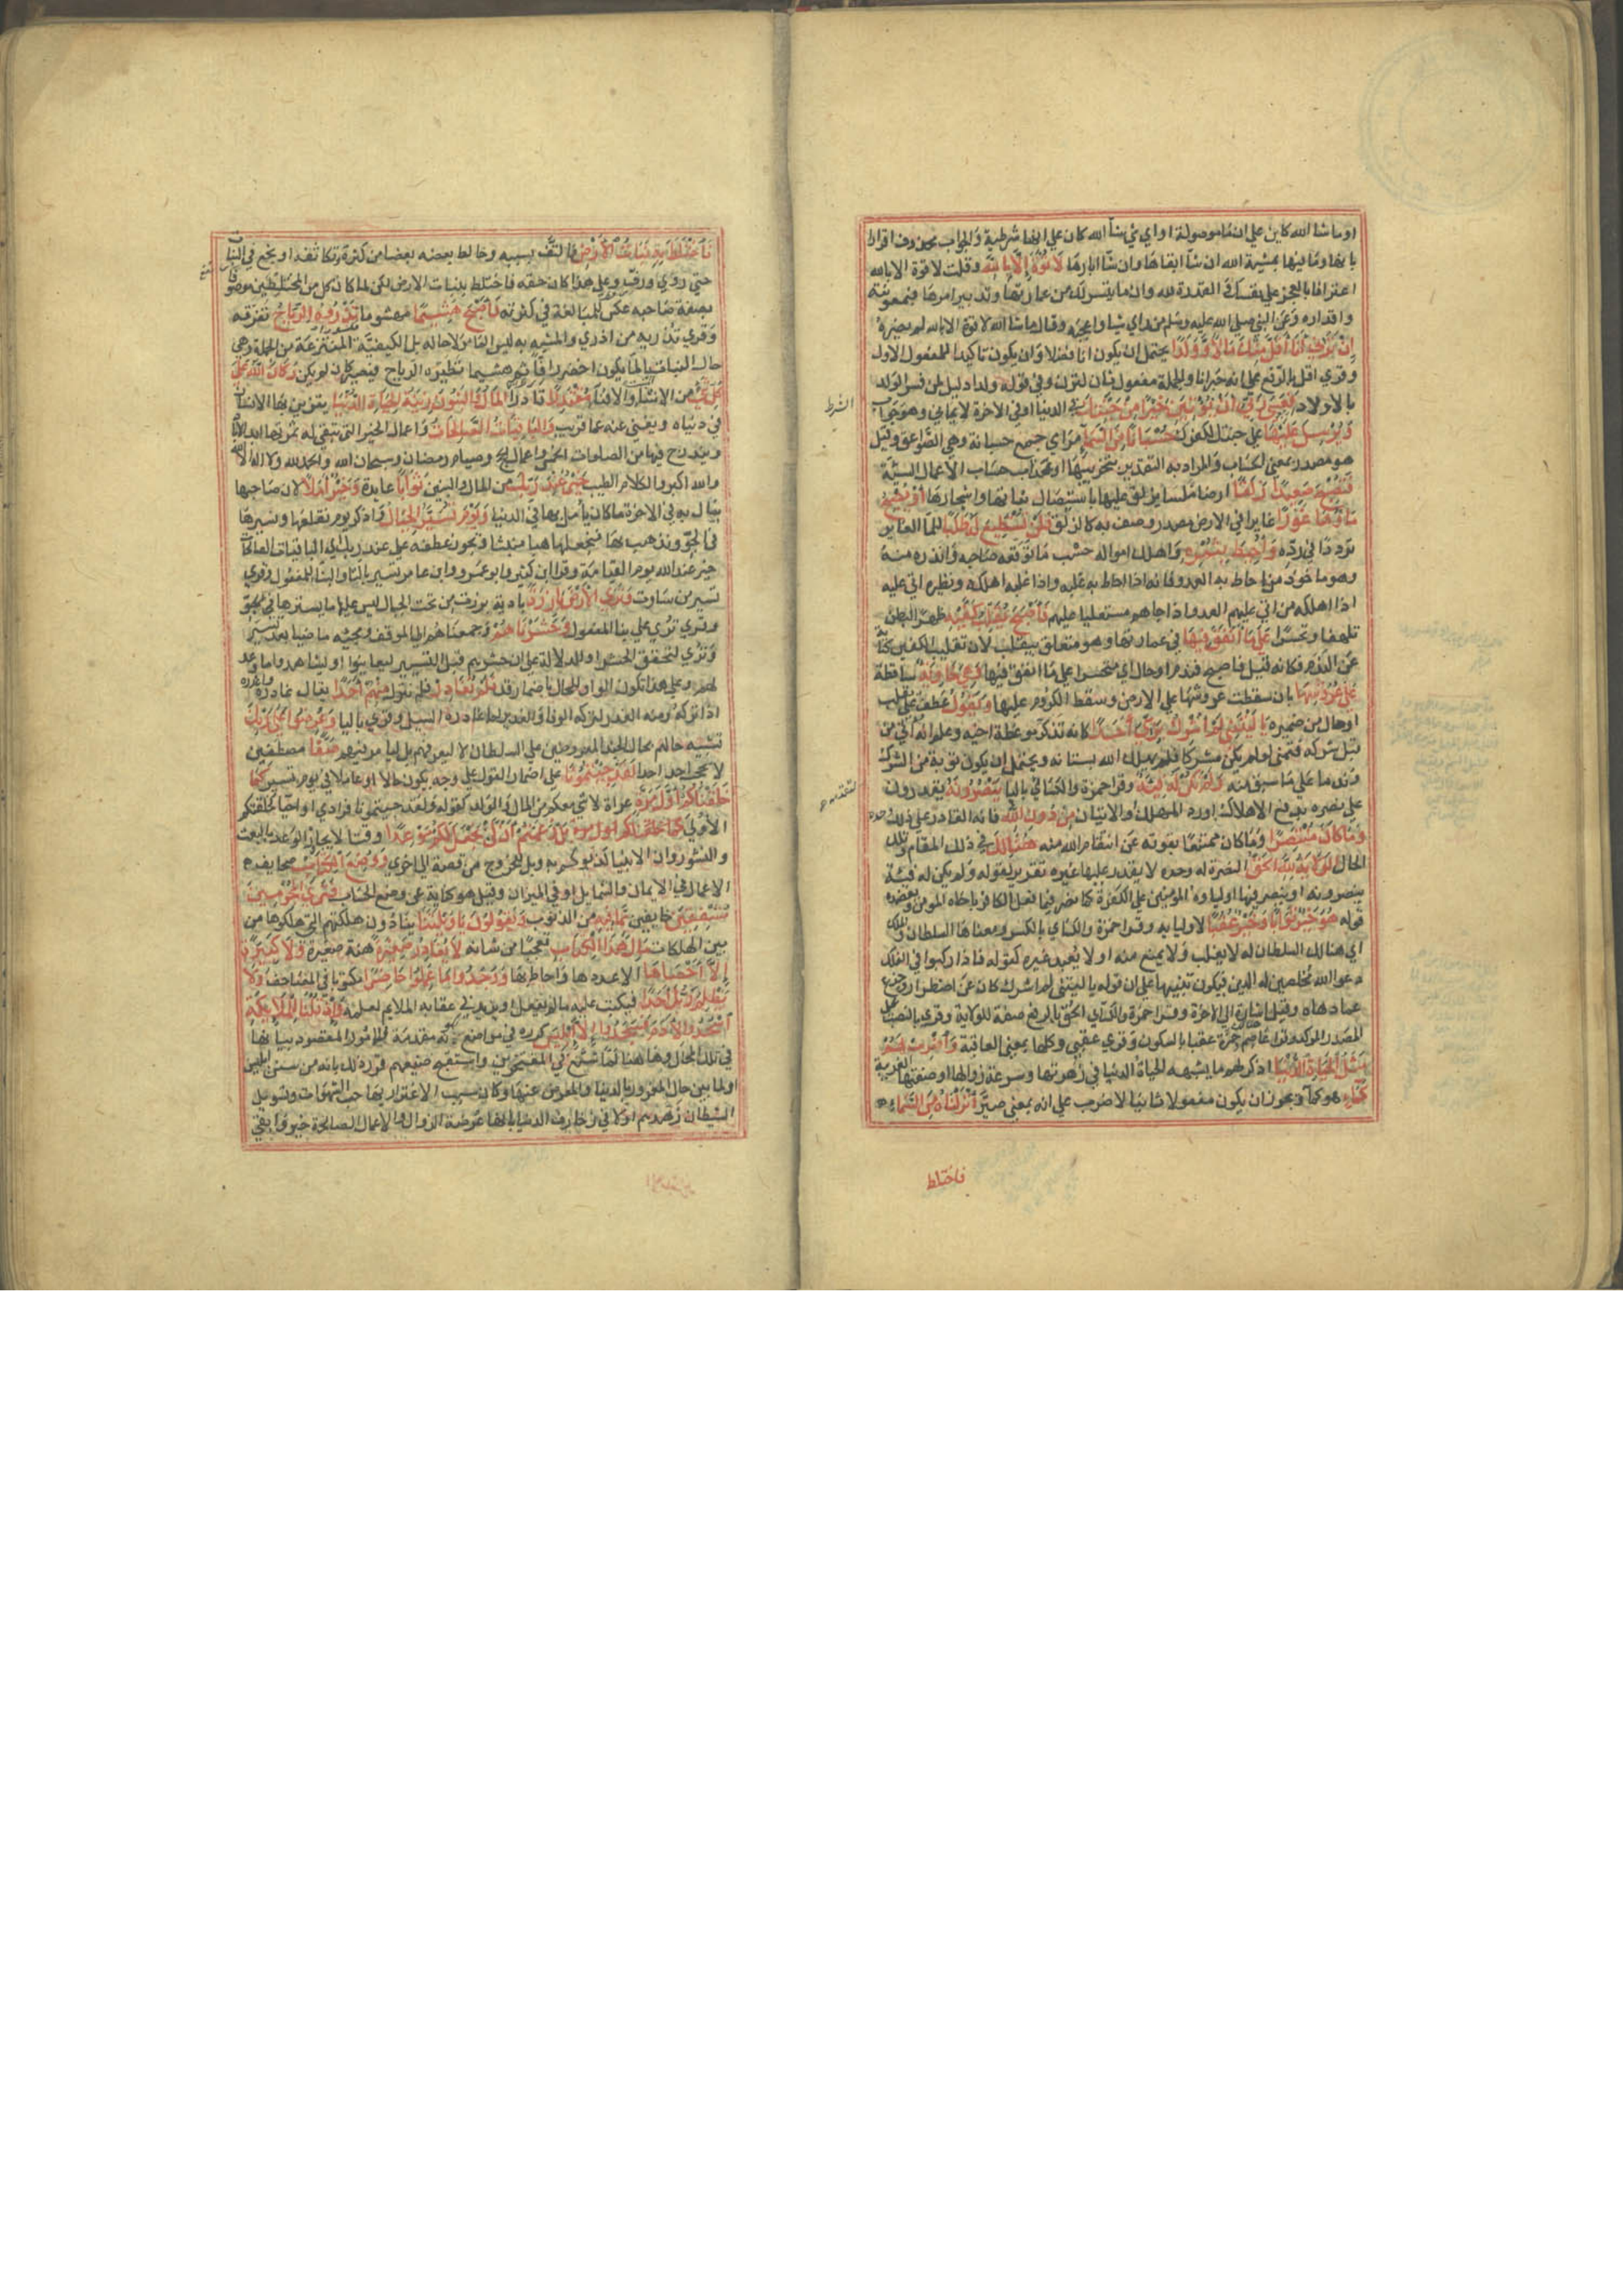 او ما شا الله كاين على ان ما موصولة او اي شي شا الله كان على انها شرطية والجواب محذوف اقرارا
بانها وما فيها بمشية الله ان شا ابقاها وان شا ابارها لَا قُوَّةَ إِلَّا بِاللَّهِ وقلت لا قوة الا بالله
اعترافا بالعجز على نفسك و القدرة لله وان ما يتسر لك من عمارتها وتدبير امرها فبمعونته
واقداره وعن النبي صلى الله عليه وسلم من راي شيا واعجبه وقال ما شا الله لا قوة الا بالله لم يضره
إِنْ تَرَنِي أَنَا أَقَلَّ مِنْكَ مَالًا وَوَلَدًا يحتمل ان يكون انا فصلا وان يكون تاكيدا للمفعول الاول
وقري اقل بالرفع على انه خبر انا والجملة مفعول ثان لترن وفي قوله وولدا دليل لمن فسر الولد
بالاولاد فَعَسَى رَبِّي أَنْ يُؤْتِيَنِ خَيْرًا مِنْ جَنَّتِكَ في الدنيا او في الاخرة لايماني وهو جواب
الشرط
وَيُرْسِلَ عَلَيْهَا على جنتك لكفرك حُسْبَانًا مِنَ السَّمَاءِ مرامي جمع حسبانة وهي الصواعق وقيل
هو مصدر بمعنى الحساب والمراد به التقدير بتخريبها او عذاب حساب الاعمال السيئة
فَتُصْبِحَ صَعِيدًا زَلَقًا ارضا ملسا يزلق عليها باستيصال نباتها واشجارها أَوْ يُصْبِحَ
مَاؤُهَا غَوْرًا غايرا في الارض مصدر وصف به كالزلق فَلَنْ تَسْتَطِيعَ لَهُ طَلَبًا للما الغاير
ترددا في رده وَأُحِيطَ بِثَمَرِهِ واهلك امواله حسب ما توقعه صاحبه وانذره منه
وهو ماخوذ من احاط به العدو فانه اذا احاط به غلبه واذا غلبه اهلكه ونظيره اتى عليه
اذا اهلكه من اتى عليهم العدو اذا جاهم مستعليا عليهم فَأَصْبَحَ يُقَلِّبُ كَفَّيْهِ ظهرا لبطن
تلهفا وتحسرا عَلَى مَا أَنْفَقَ فِيهَا في عمارتها وهو متعلق بيقلب لان تقليب الكفين كناية
عن الندم فكانه قيل فاصبح يندم او حال اي متحسرا على ما انفق فيها وَهِيَ خَاوِيَةٌ ساقطة
عَلَى عُرُوشِهَا بان سقطت عروشها على الارض وسقط الكروم عليها وَيَقُولُ عطف على يقلب
او حال من ضميره يَا لَيْتَنِي لَمْ أُشْرِكْ بِرَبِّي أَحَدًا كانه تذكر موعظة اخيه وعلم انه اتي من
قبل شركه فتمنى لو لم يكن مشركا فلم يهلك الله بستانه ويحتمل ان يكون توبة من الشرك
وندما على ما سبق منه وَلَمْ تَكُنْ لَهُ فِئَةٌ وقرا حمزة والكسائي باليا يَنْصُرُونَهُ يقدرون
على نصره بدفع الاهلاك او رد المهلك او الاتيان مِنْ دُونِ اللَّهِ فانه القادر على ذلك وحده
وَمَا كَانَ مُنْتَصِرًا وما كان ممتنعا بقوته عن انتقام الله منه هُنَالِكَ في ذلك المقام وتلك
الحال الْوَلَايَةُ لِلَّهِ الْحَقِّ النصرة له وحده لا يقدر عليها غيره تقرير لقوله ولم يكن له فيئة
ينصرونه او ينصر فيها اولياه المؤمنين على الكفرة كما نصر فيما فعل بالكافر باخاه المومن ويعضده
قوله هُوَ خَيْرٌ ثَوَابًا وَخَيْرٌ عُقْبًا لاوليايه وقرا حمزة والكساي بالكسر ومعناها السلطان والملك
اي هنالك السلطان له لا يغلب ولا يمنع منه او لا يعبد غيره كقوله فاذا ركبوا في الفلك
دعوا الله مخلصين له الدين فيكون تنبيها على ان قوله يا ليتني لم اشرك كان عن اضطرار وجزع
مما دهاه وقيل اشارة الى الاخرة وقرا حمزة والكساي الحق بالرفع صفة للولاية وقري بالنصب على
المصدر الموكد وقرا عاصم وحمزة عقبا بالسكون وقري عقبى وكلها بمعنى العاقبة وَاضْرِبْ لَهُمْ
مَثَلَ الْحَيَاةِ الدُّنْيَا اذكر لهم ما يشبهه الحياة الدنيا في زهرتها وسرعة زوالها او صفتها الغريبة
كَمَاءٍ هو كما ويجوز ان يكون مفعولا ثانيا لاضرب على انه بمعنى صير أَنْزَلْنَاهُ مِنَ السَّمَاءِ
فاختلط
فَاخْتَلَطَ بِهِ نَبَاتُ الْأَرْضِ فالتف بسببه وخالط بعضه بعضا من كثرته وتكاثفه او نجع في النبات
حتى روي ورف وعلى هذا كان حقه فاختلط بنبات الارض لكن لما كان كل من المختلطين موصوفا
بصفة صاحبه عكس للمبالغة في كثرته فَأَصْبَحَ هَشِيمًا مهشوما تَذْرُوهُ الرِّيَاحُ تفرقه
وقري تذريه من اذري والمشبه به ليس الما ولا حاله بل الكيفية المنتزعة من الجملة وهي
حال النبات بالما يكون اخضر وارفا ثم هشيما تطيره الرياح فيصير كان لم يكن وَكَانَ اللَّهُ عَلَى
كُلِّ شَيْءٍ من الانشا والافنا مُقْتَدِرًا قادرا الْمَالُ وَالْبَنُونَ زِينَةُ الْحَيَاةِ الدُّنْيَا يتزين بها الانسان
في دنياه ويفنى عنه عما قريب وَالْبَاقِيَاتُ الصَّالِحَاتُ واعمال الخير التي تبقى له ثمرتها ابد الاباد
ويندرج فيها من الصلوات الخمس واعمال الحج وصيام رمضان وسبحان الله والحمد لله ولا اله الا الله
والله اكبر والكلام الطيب خَيْرٌ عِنْدَ رَبِّكَ من المال والبنين ثَوَابًا عايدة وَخَيْرٌ أَمَلًا لان صاحبها
ينال به في الاخرة ما كان يامل بها في الدنيا وَيَوْمَ نُسَيِّرُ الْجِبَالَ واذكر يوم نقلعها ونسيرها
في الجو ونذهب بها فنجعلها هبا منبثا ويجوز عطفه على عند ربك اي الباقيات الصالحات
خير عند الله يوم القيامة وقرا ابن كثير وابو عمرو وابن عامر تسير بالتا والبنا للمفعول وقري
تسير من سارت وَتَرَى الْأَرْضَ بَارِزَةً بادية برزت من تحت الجبال ليس عليها ما يسترها
وقري تُرى على بنا المفعول وَحَشَرْنَاهُمْ وجمعناهم الى الموقف ومجيه ماضيا بعد نسير
وترى لتحقق الحشر او للدلالة على ان حشرهم قبل التسيير ليعاينوا او ليشاهدوا ما وعد
لهم وعلى هذا تكون الواو للحال باضمار قد فَلَمْ نُغَادِرْ فلم نترك مِنْهُمْ أَحَدًا يقال غادره واغدره
اذا تركه ومنه الغدر لترك الوفا والغدير لما غادره السيل وقري باليا وَعُرِضُوا عَلَى رَبِّكَ
تشبيه حالهم بحال الجند المعروضين على السلطان لا ليعرفهم بل ليامر فيهم صَفًّا مصطفين
لا يحجب احد احدا لَقَدْ جِئْتُمُونَا على اضمار القول على وجه يكون حالا او عاملا في يوم نسير كَمَا
خَلَقْنَاكُمْ أَوَّلَ مَرَّةٍ عراة لا شي معكم من المال والولد كقوله ولقد جيتمونا فرادى او احيا كخلقتكم
الاولى بَلْ زَعَمْتُمْ أَنْ لَنْ نَجْعَلَ لَكُمْ مَوْعِدًا وقتا لانجاز الوعد بالبعث
والنشور وان الانبيا كذبوكم به وبل للخروج من قصة الى اخرى وَوُضِعَ الْكِتَابُ صحايف
الاعمال في الايمان والشمايل او في الميزان وقيل هو كناية عن وضع الحساب فَتَرَى الْمُجْرِمِينَ
مُشْفِقِينَ خايفين مِمَّا فِيهِ من الذنوب وَيَقُولُونَ يَا وَيْلَتَنَا ينادون هلكتهم التي هلكوها من
بين الهلكات مَالِ هَذَا الْكِتَابِ تعجبا من شانه لَا يُغَادِرُ صَغِيرَةً هنة صغيرة وَلَا كَبِيرَةً
إِلَّا أَحْصَاهَا الا عددها واحاط بها وَوَجَدُوا مَا عَمِلُوا حَاضِرًا مكتوبا في الصحف وَلَا
يَظْلِمُ رَبُّكَ أَحَدًا فيكتب عليه ما لم يفعل او يزيد في عقابه الملايم لعمله وَإِذْ قُلْنَا لِلْمَلَائِكَةِ
اسْجُدُوا لِآدَمَ فَسَجَدُوا إِلَّا إِبْلِيسَ كرره في مواضع لكونه مقدمة للامور المقصود بيانها
في تلك المحال وهاهنا لما شنع على المفتخرين واستقبح صنيعهم قرر ذلك بانه من سنن ابليس
او لما بين حال المغرور بالدنيا والمعرض عنها وكان سبب الاغترار بها حب الشهوات وتسويل
الشيطان زهدهم اولا في زخارف الدنيا بانها عرضة الزوال والاعمال الصالحة خير وابقى